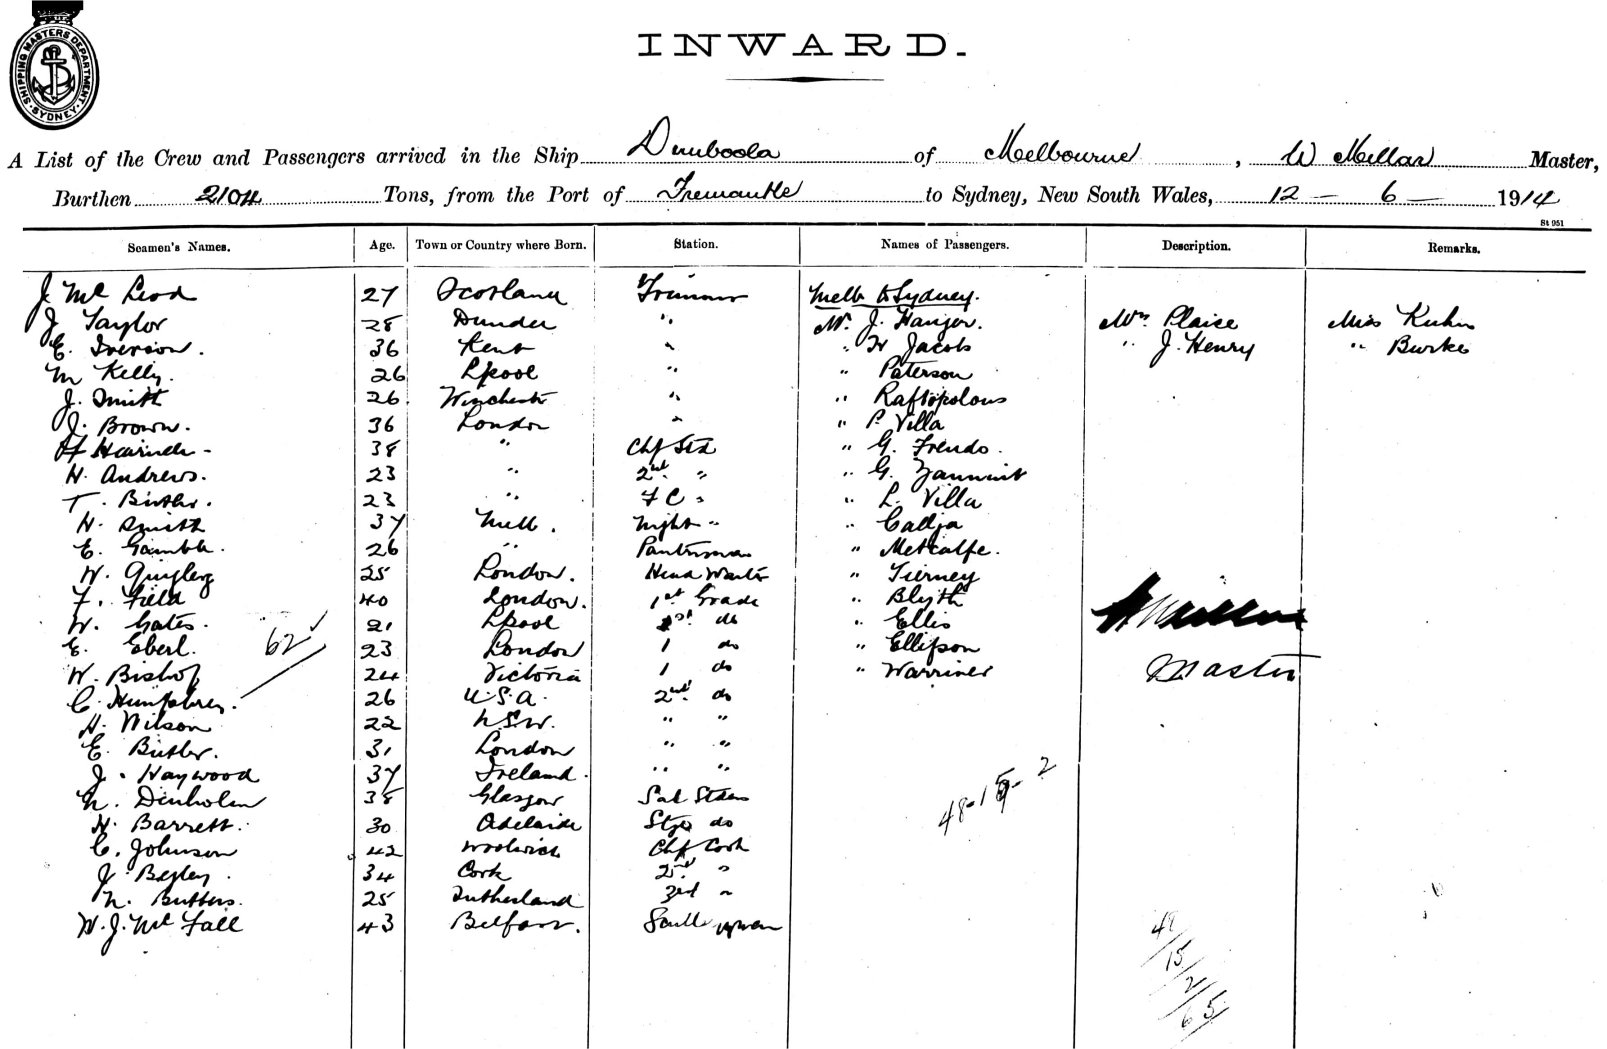 SHIPPING MASTERS DEPARTMENT. SYDNEY
INWARD.
A List of the Crew and Passengers arrived in the Ship Dimboola of Melbourne, W Mellar Master,
Burthen 2104 Tons, from the Port of Fremantle to Sydney, New South Wales, 12 - 6 - 1914
St 951
Seamen's Names. Age. Town or Country where Born. Station. Names of Passengers. Description. Remarks.
J McLeod 27 Scotland Trimmer Melb to Sydney.
J Taylor 28 Dundee " Mr. J. Hanger. Mrs Plaice Miss Kuhn
E. Iverson. 36 Kent " " W Jacobs " J. Henry " Burke
M Kelly. 26 Lpool " " Paterson
J. Smith 26. Winchester " " Raftopolous
J. Brown. 36 London " " P. Villa
H 38 " Chf Std " G. Frendo.
H. Andrews. 23 " 2nd " " G.
T. Butler. 23 " F C " " L. Villa
H. Smith 37 Melb. Night " " Callja
E. Gamble. 26 " Pantryman " Metcalfe.
W. Quigley 25 London. Head Waiter " Tierney
F. Field 40 London. 1st Grade " Blyth
W. Gates. 21 Lpool 1st do " Ellis
E. Eberl. 62 23 London 1 do " Ellifson
W. Bishop 24 Victoria 1 do " Warriner Master
C. Humphries. 26 U.S.A. 2nd do
H. Wilson 22 N.S.W. " "
E. Butler. 31 London " "
J. Haywood 37 Ireland. " "
N. Denholm 38 Glasgow Sal Stdess
H. Barrett. 30 Adelaide Stges do
C. Johnson 42 Woolwich Chf Cook
J. Begley. 34 Cork 2nd "
N. Butters. 25 Sutherland 3rd "
W. J. McFall 43 Belfast. Sculleryman
48-15-2
48
15
2
65